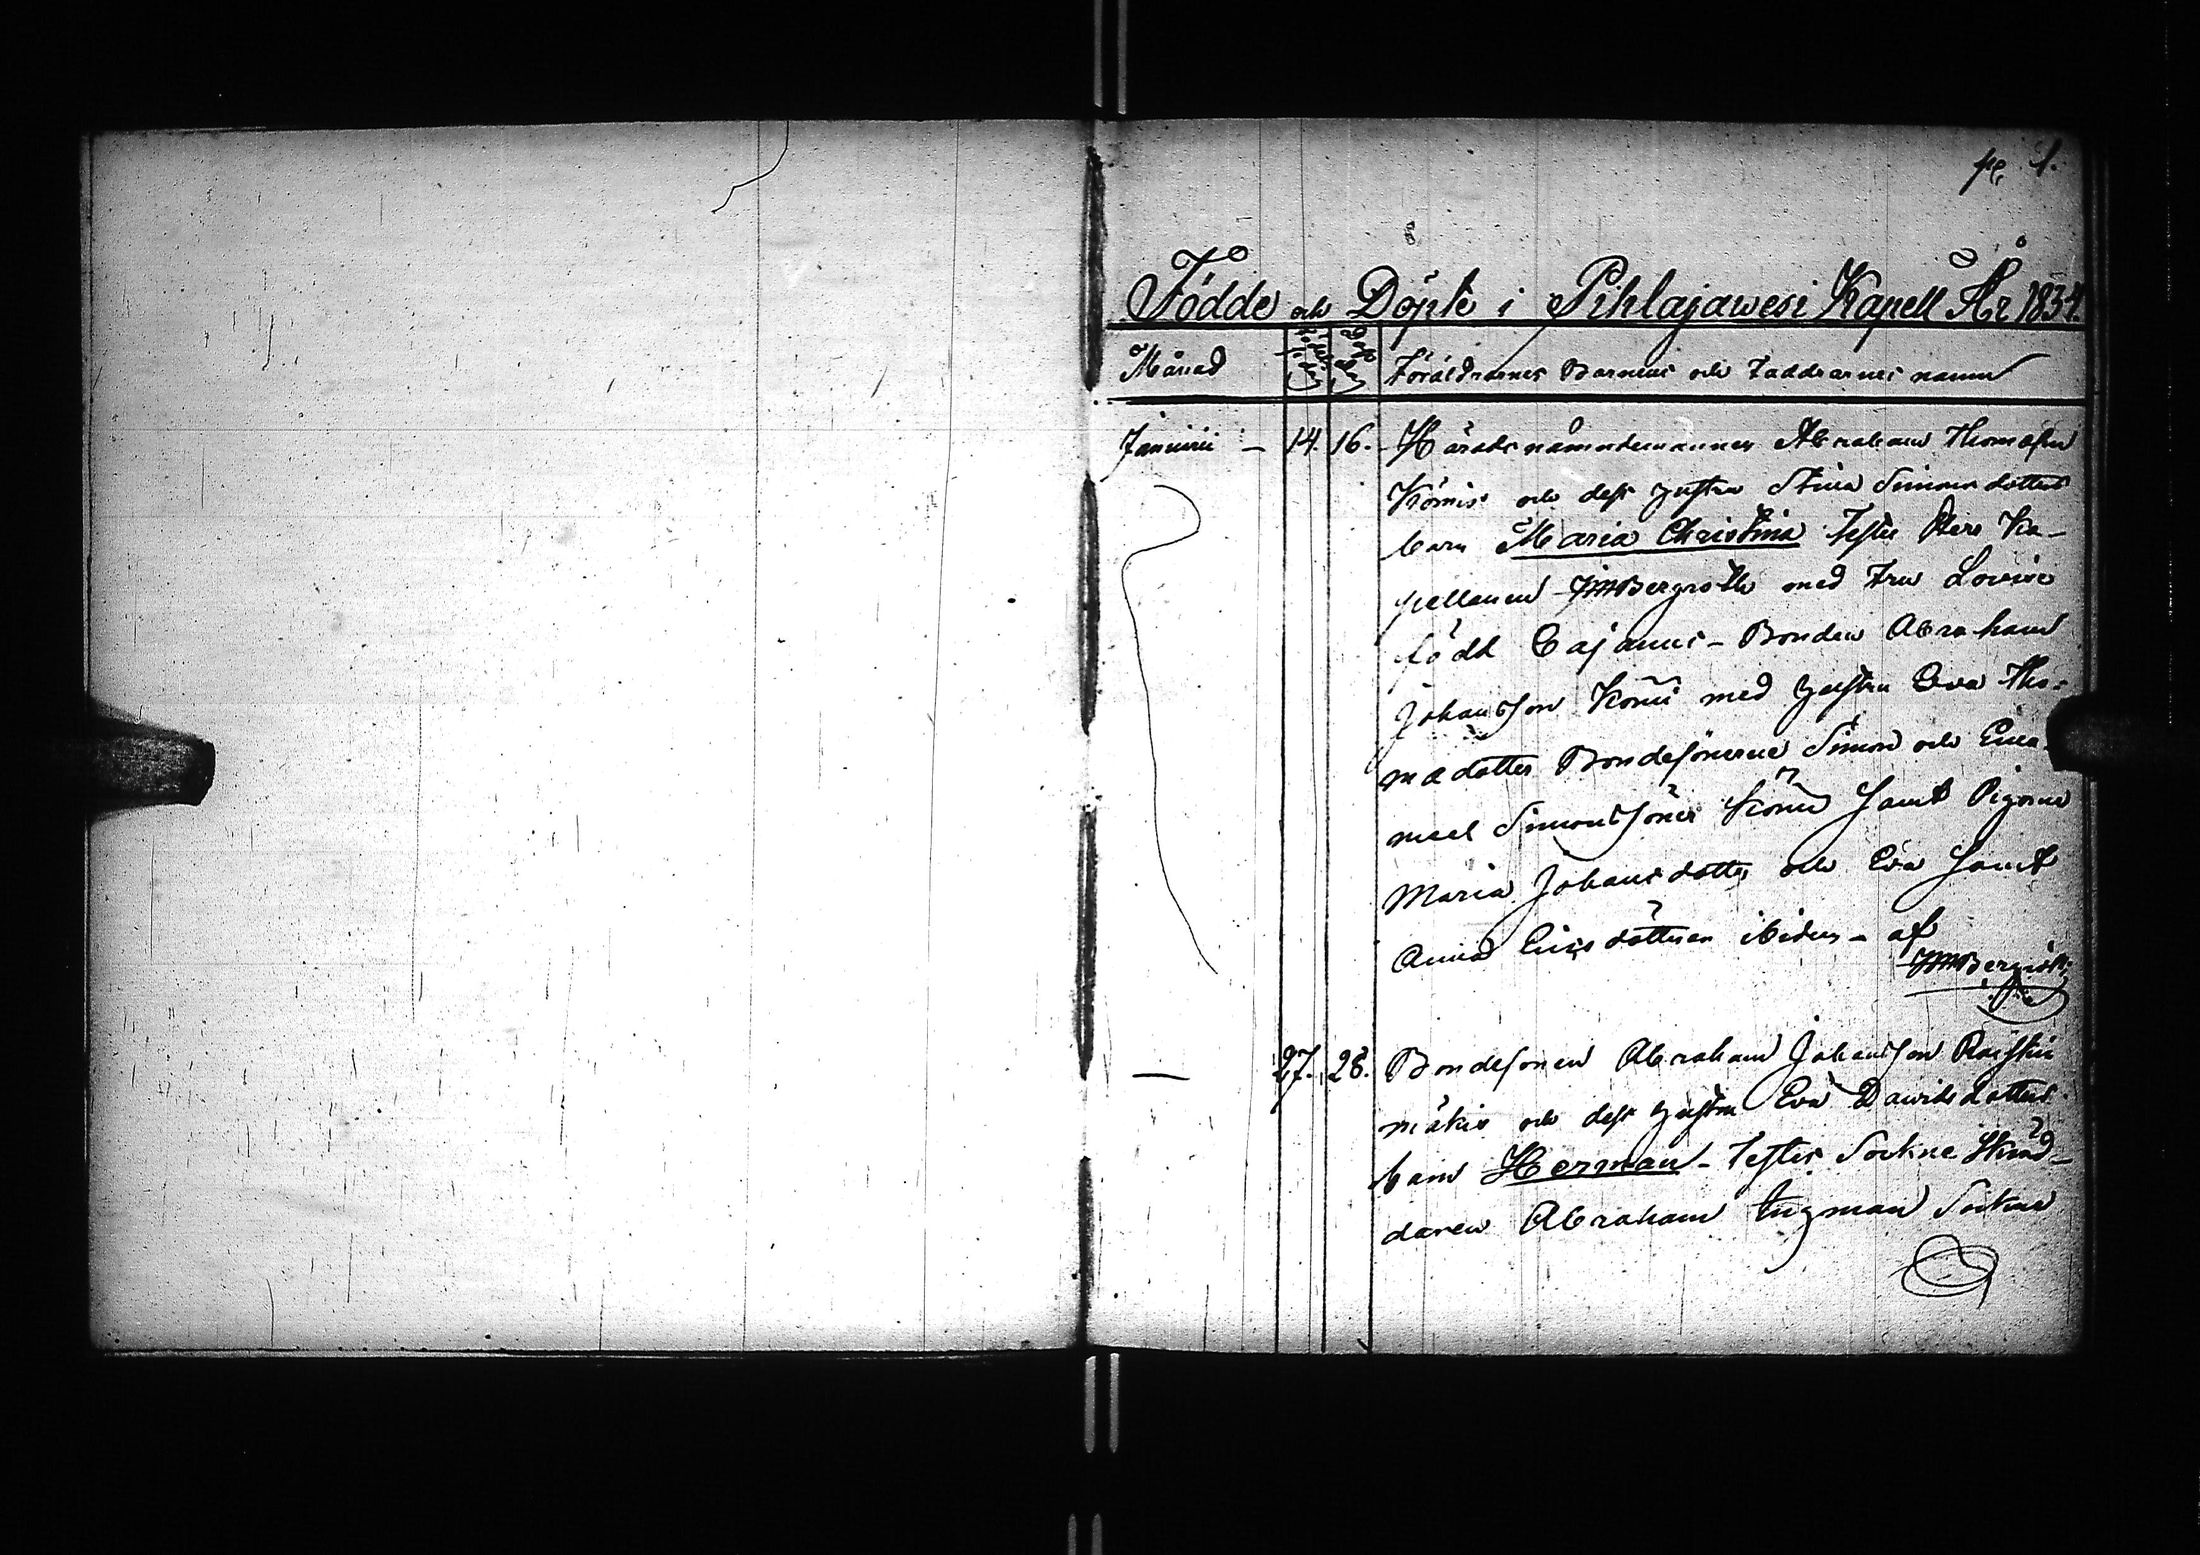 pg. 1.
Födde och Döpte i Pihlajawesi Kapell År 1834.
Månad Födelse dag Döpelse dag Föräldrarnes Barnens och Faddrarnes namn
Januarii – 14. 16. Häradsnämndemannen Abraham Thomasson
Könnis och dess hustru Stina Simonsdotters
barn Maria Christina Testes Herr Ka-
pellanen JMBergroth med Fru Lovise
född Cajanus – Bonden Abraham
Johansson Könni med hustru Eva Tho-
mædotter Bondesönerne Simon och Ema-
nuel Simonssöner Könni samt Pigorne
Maria Johansdotter och Eva samt
Anna Ericsdöttrar ibidem – af
JMBergroth
— 27. 28. Bondesonen Abraham Johansson
mäkis och dess hustru Eva Davidsdotters
barn Herman – Testes Sockne Skräd-
daren Abraham Ingman Sockne